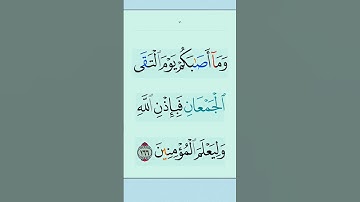 وَمَآ أَصَـٰبَكُمْ يَوْمَ ٱلْتَقَى
ٱلْجَمْعَانِ فَبِإِذْنِ ٱللَّهِ
وَلِيَعْلَمَ ٱلْمُؤْمِنِينَ ١٦٦